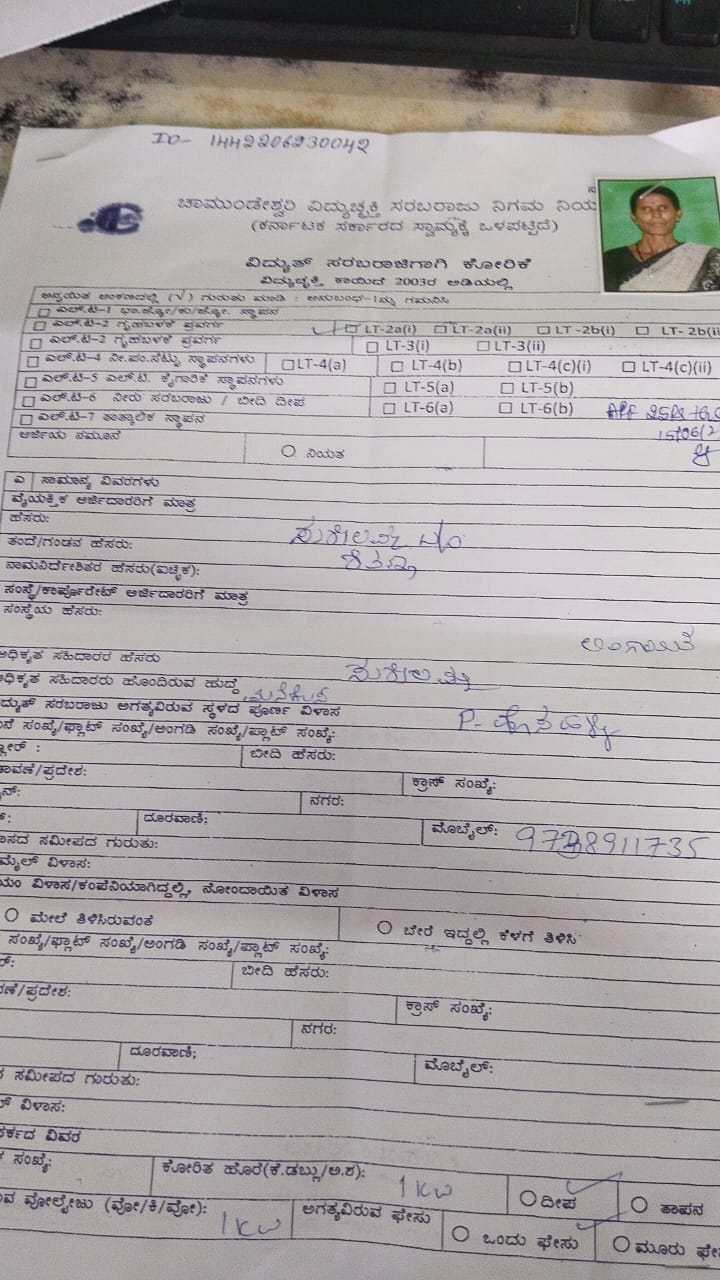 ID- 1442206230042
ಚಾಮುಂಡೇಶ್ವರಿ ವಿದ್ಯುಚ್ಛಕ್ತಿ ಸರಬರಾಜು ನಿಗಮ ನಿಯ
(ಕರ್ನಾಟಕ ಸರ್ಕಾರದ ಸ್ವಾಮ್ಯಕ್ಕೆ ಒಳಪಟ್ಟಿದೆ)
ವಿದ್ಯುತ್ ಸರಬರಾಜಿಗಾಗಿ ಕೋರಿಕೆ
ವಿದ್ಯುಚ್ಛಕ್ತಿ ಕಾಯಿದೆ 2003ರ ಅಡಿಯಲ್ಲಿ
ಅನ್ವಯಿತ ಅಂಕಣದಲ್ಲಿ (√) ಗುರುತು ಮಾಡಿ : ಅನುಬಂಧ-1ನ್ನು ಗಮನಿಸಿ
ಎಲ್.ಟಿ-1 ಭಾ.ಜ್ಯೋ/ಕು.ಜ್ಯೋ. ಸ್ಥಾಪನ
ಎಲ್.ಟಿ-2 ಗೃಹಬಳಕೆ ಪ್ರವರ್ಗ LT-2a(i) LT-2a(ii) LT -2b(i) LT- 2b(ii
ಎಲ್.ಟಿ-2 ಗೃಹಬಳಕೆ ಪ್ರವರ್ಗ LT-3(i) LT-3(ii)
ಎಲ್.ಟಿ-4 ನೀ.ಪಂ.ಸೆಟ್ಟು ಸ್ಥಾಪನಗಳು LT-4(a) LT-4(b) LT-4(c)(i) LT-4(c)(ii)
ಎಲ್.ಟಿ-5 ಎಲ್.ಟಿ. ಕೈಗಾರಿಕೆ ಸ್ಥಾಪನಗಳು LT-5(a) LT-5(b)
ಎಲ್.ಟಿ-6 ನೀರು ಸರಬರಾಜು / ಬೀದಿ ದೀಪ LT-6(a) LT-6(b)
ಎಲ್.ಟಿ-7 ತಾತ್ಕಾಲಿಕ ಸ್ಥಾಪನ
ಅರ್ಜಿಯ ನಮೂನೆ ನಿಯತ
ಎ ಸಾಮಾನ್ಯ ವಿವರಗಳು
ವೈಯಕ್ತಿಕ ಅರ್ಜಿದಾರರಿಗೆ ಮಾತ್ರ
ಹೆಸರು:
ತಂದೆ/ಗಂಡನ ಹೆಸರು:
ನಾಮನಿರ್ದೇಶಿತರ ಹೆಸರು(ಐಚ್ಛಿಕ):
ಸಂಸ್ಥೆ/ಕಾರ್ಪೊರೇಟ್ ಅರ್ಜಿದಾರರಿಗೆ ಮಾತ್ರ
ಸಂಸ್ಥೆಯ ಹೆಸರು:
ಅಧಿಕೃತ ಸಹಿದಾರರ ಹೆಸರು
ಅಧಿಕೃತ ಸಹಿದಾರರು ಹೊಂದಿರುವ ಹುದ್ದೆ
ದ್ಯುತ್ ಸರಬರಾಜು ಅಗತ್ಯವಿರುವ ಸ್ಥಳದ ಪೂರ್ಣ ವಿಳಾಸ
ನೆ ಸಂಖ್ಯೆ/ಫ್ಲಾಟ್ ಸಂಖ್ಯೆ/ಅಂಗಡಿ ಸಂಖ್ಯೆ/ಪ್ಲಾಟ್ ಸಂಖ್ಯೆ:
್ಲೋರ್ : ಬೀದಿ ಹೆಸರು:
ಾವಣೆ/ಪ್ರದೇಶ: ಕ್ರಾಸ್ ಸಂಖ್ಯೆ:
ನಗರ:
ದೂರವಾಣಿ; ಮೊಬೈಲ್:
ಾಸದ ಸಮೀಪದ ಗುರುತು:
ಮೈಲ್ ವಿಳಾಸ:
ಯಂ ವಿಳಾಸ/ಕಂಪೆನಿಯಾಗಿದ್ದಲ್ಲಿ, ನೋಂದಾಯಿತ ವಿಳಾಸ
ಮೇಲೆ ತಿಳಿಸಿರುವಂತೆ ಬೇರೆ ಇದ್ದಲ್ಲಿ ಕೆಳಗೆ ತಿಳಿಸಿ
ಸಂಖ್ಯೆ/ಫ್ಲಾಟ್ ಸಂಖ್ಯೆ/ಅಂಗಡಿ ಸಂಖ್ಯೆ/ಪ್ಲಾಟ್ ಸಂಖ್ಯೆ:
ಬೀದಿ ಹೆಸರು:
ಣೆ/ಪ್ರದೇಶ: ಕ್ರಾಸ್ ಸಂಖ್ಯೆ:
ನಗರ:
ದೂರವಾಣಿ; ಮೊಬೈಲ್:
ಸಮೀಪದ ಗುರುತು:
ಲ್ ವಿಳಾಸ:
ರ್ಕದ ವಿವರ
ಸಂಖ್ಯೆ: ಕೋರಿತ ಹೊರೆ(ಕೆ.ಡಬ್ಲು/ಅ.ಶ): 1 KW ದೀಪ ತಾಪನ
ುವ ವೋಲ್ಟೇಜು (ವೋ/ಕಿ/ವೋ): 1 KW ಅಗತ್ಯವಿರುವ ಫೇಸು ಒಂದು ಫೇಸು ಮೂರು ಫೇ